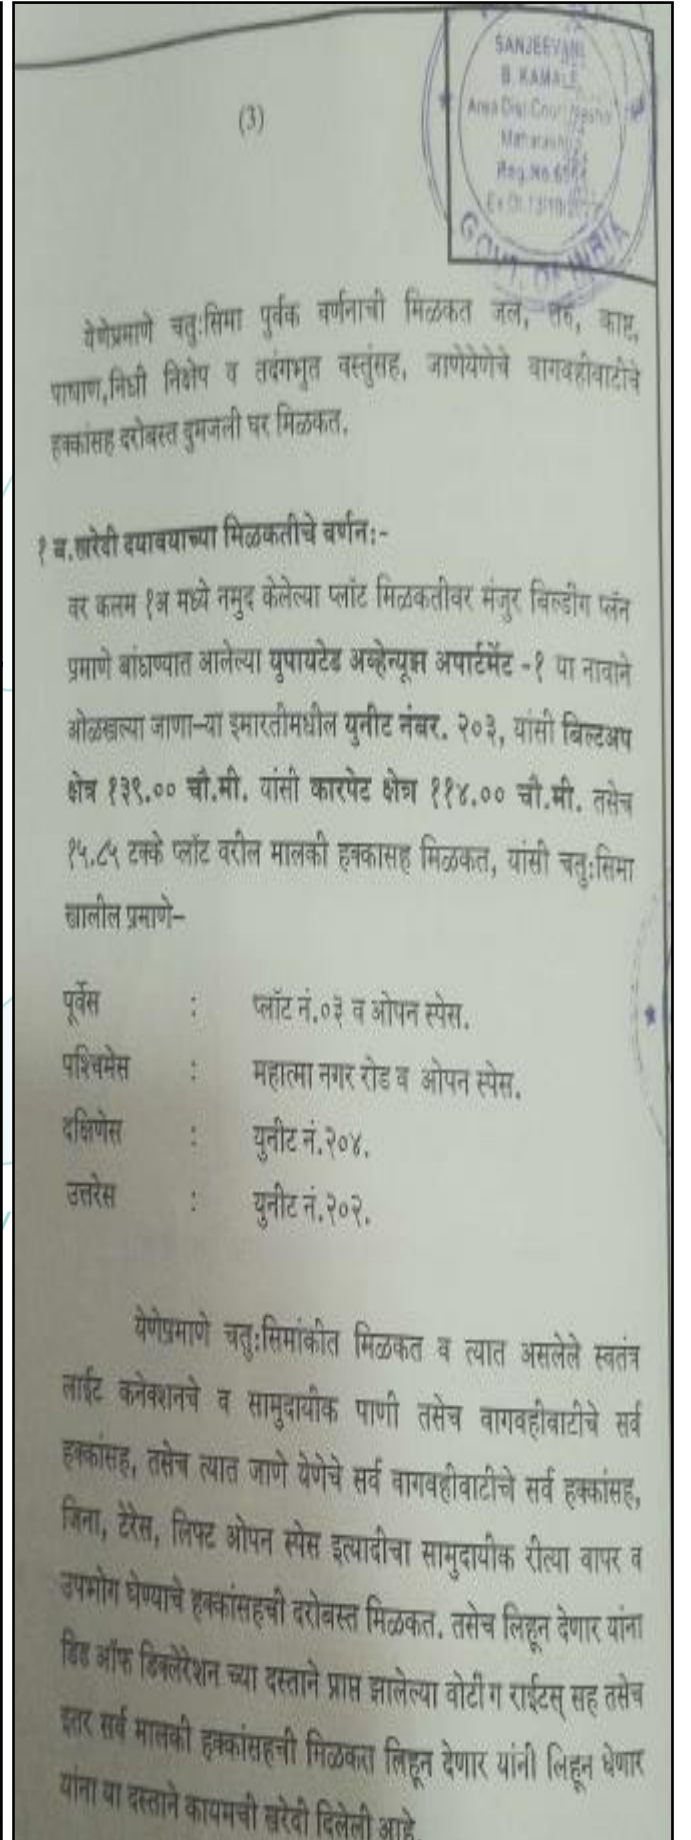 SANJEEVANI
B. KAMALE
Area Dist Court
Maharashtra
Reg.No.
GOVT. OF INDIA
(3)
येणेप्रमाणे चतु:सिमा पुर्वक वर्णनाची मिळकत जल, तरु, काष्ट,
पाषाण,निधी निक्षेप व तदंगभुत वस्तुंसह, जाणेयेणेचे वागवहीवाटीचे
हक्कांसह दरोबस्त दुमजली घर मिळकत.
१ ब.खरेदी दयावयाच्या मिळकतीचे वर्णन:-
वर कलम १अ मध्ये नमुद केलेल्या प्लॉट मिळकतीवर मंजुर बिल्डींग प्लॅन
प्रमाणे बांधण्यात आलेल्या युपायटेड अव्हेन्यूझ अपार्टमेंट -१ या नावाने
ओळखल्या जाणा-या इमारतीमधील युनीट नंबर. २०३, यांसी बिल्टअप
क्षेत्र १३९.०० चौ.मी. यांसी कारपेट क्षेत्र ११४.०० चौ.मी. तसेच
१५.८५ टक्के प्लॉट वरील मालकी हक्कासह मिळकत, यांसी चतु:सिमा
खालील प्रमाणे-
पूर्वेस : प्लॉट नं.०३ व ओपन स्पेस.
पश्चिमेस : महात्मा नगर रोड व ओपन स्पेस.
दक्षिणेस : युनीट नं.२०४.
उत्तरेस : युनीट नं.२०२.
येणेप्रमाणे चतु:सिमांकीत मिळकत व त्यात असलेले स्वतंत्र
लाईट कनेक्शनचे व सामुदायीक पाणी तसेच वागवहीवाटीचे सर्व
हक्कांसह, तसेच त्यात जाणे येणेचे सर्व वागवहीवाटीचे सर्व हक्कांसह,
जिना, टेरेस, लिफ्ट ओपन स्पेस इत्यादीचा सामुदायीक रीत्या वापर व
उपभोग घेण्याचे हक्कांसहची दरोबस्त मिळकत. तसेच लिहून देणार यांना
डिड ऑफ डिक्लेरेशन च्या दस्ताने प्राप्त झालेल्या वोटींग राईटस् सह तसेच
इतर सर्व मालकी हक्कांसहची मिळकत लिहून देणार यांनी लिहून घेणार
यांना या दस्ताने कायमची खरेदी दिलेली आहे.